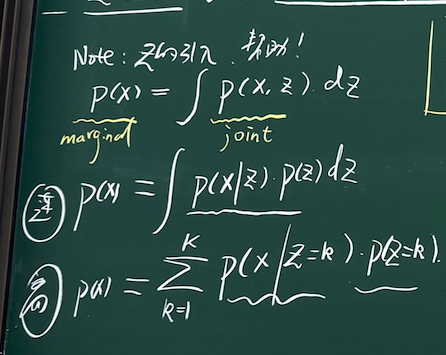 Note: Z的引入, 帮助!
p(x) = ∫ p(x, z) dz
marginal joint
连 p(x) = ∫ p(x|z)·p(z) dz
离 p(x) = Σ_{k=1}^{K} p(x|z=k)·p(z=k).